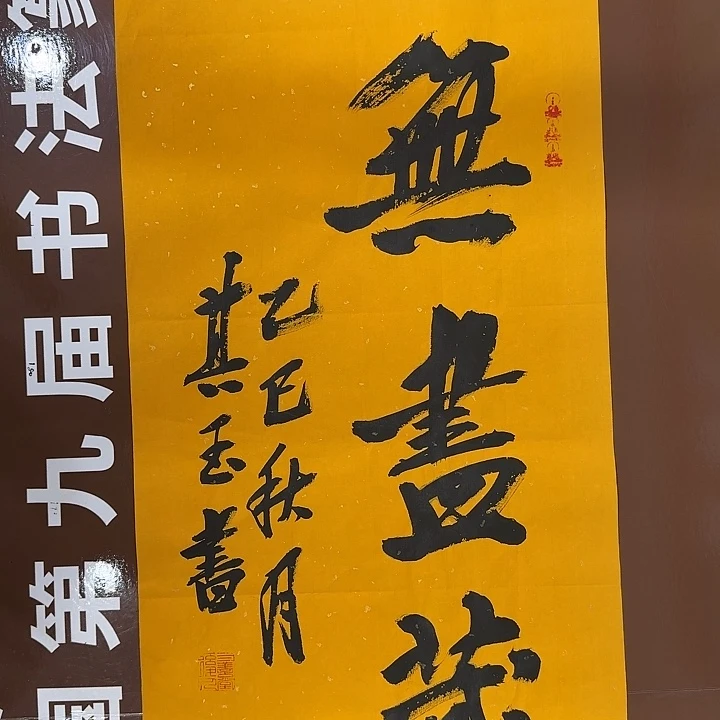 無盡藏
乙巳秋月
其玉書
国第九届书法篆